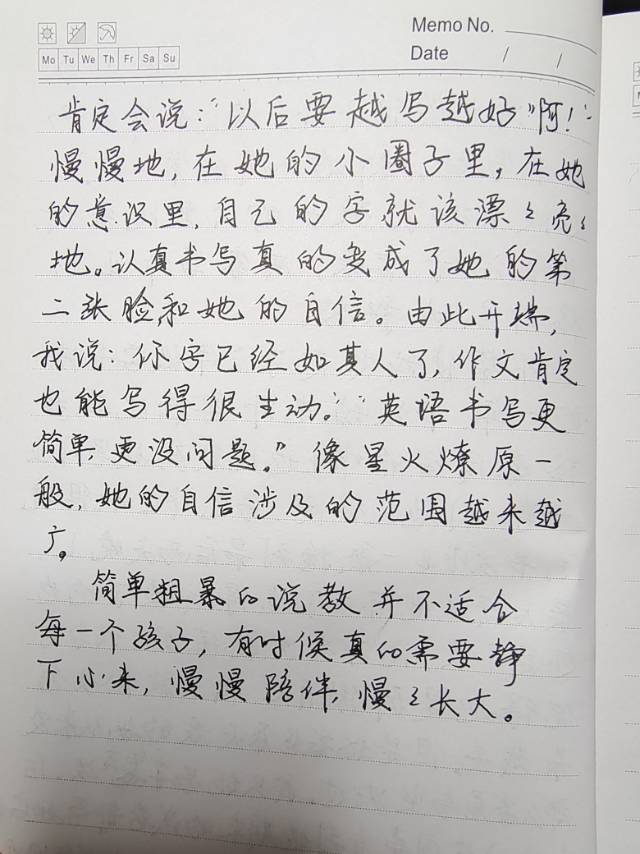 Memo No.
Mo Tu We Th Fr Sa Su
Date / /
肯定会说：“以后要越写越好”啊！”
慢慢地，在她的小圈子里，在她
的意识里，自己的字就该漂々亮々
地。认真书写真的变成了她的第
二张脸和她的自信。由此开端，
我说：你字已经如其人了，作文肯定
也能写得很生动。““英语书写更
简单，更没问题。”像星火燎原一
般，她的自信涉及的范围越来越
广。
简单粗暴的说教并不适合
每一个孩子，有时候真的需要静
下心来，慢慢陪伴，慢々长大。